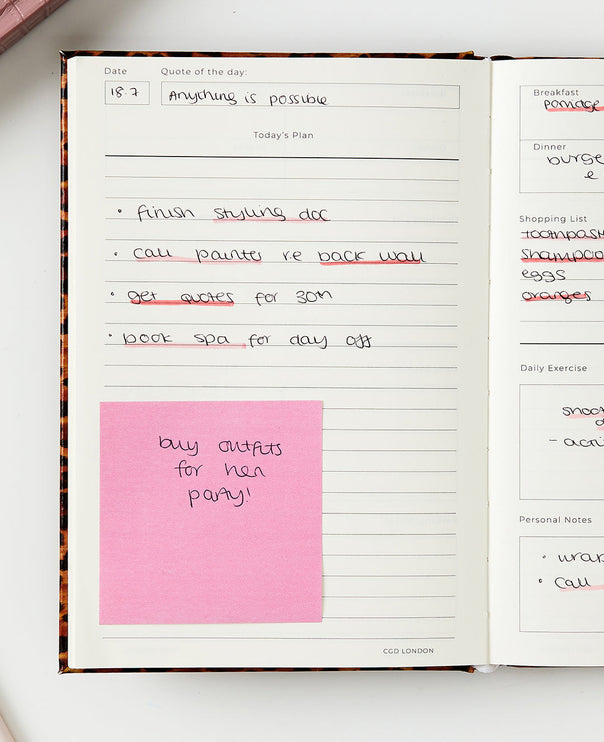 Date
Quote of the day:
18.7
Anything is possible
Today's Plan
• finish styling doc
• call painter r.e back wall
• get quotes for 30th
• book spa for day off
buy outfits
for hen
party!
CGD LONDON
Breakfast
porridge
Dinner
burge
e
Shopping List
toothpast
shampoo
eggs
oranges
Daily Exercise
- acti
Personal Notes
•
• call